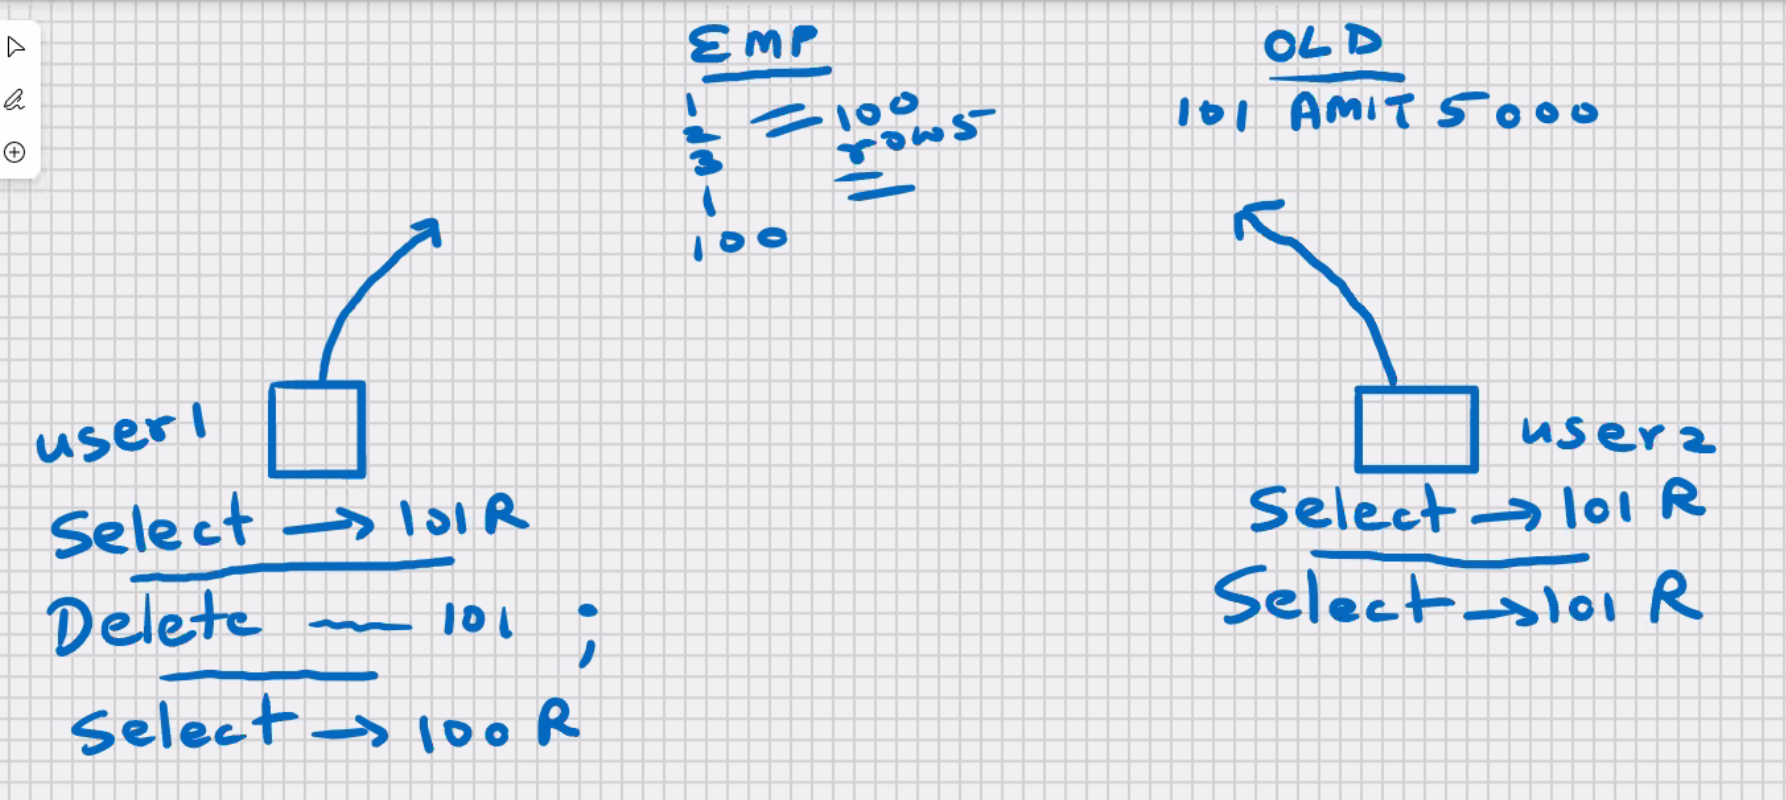 EMP
1 100
2 rows
3
1
100
OLD
101 AMIT 5000
user1
Select → 101 R
Delete 101 ;
Select → 100 R
user2
Select → 101 R
Select → 101 R